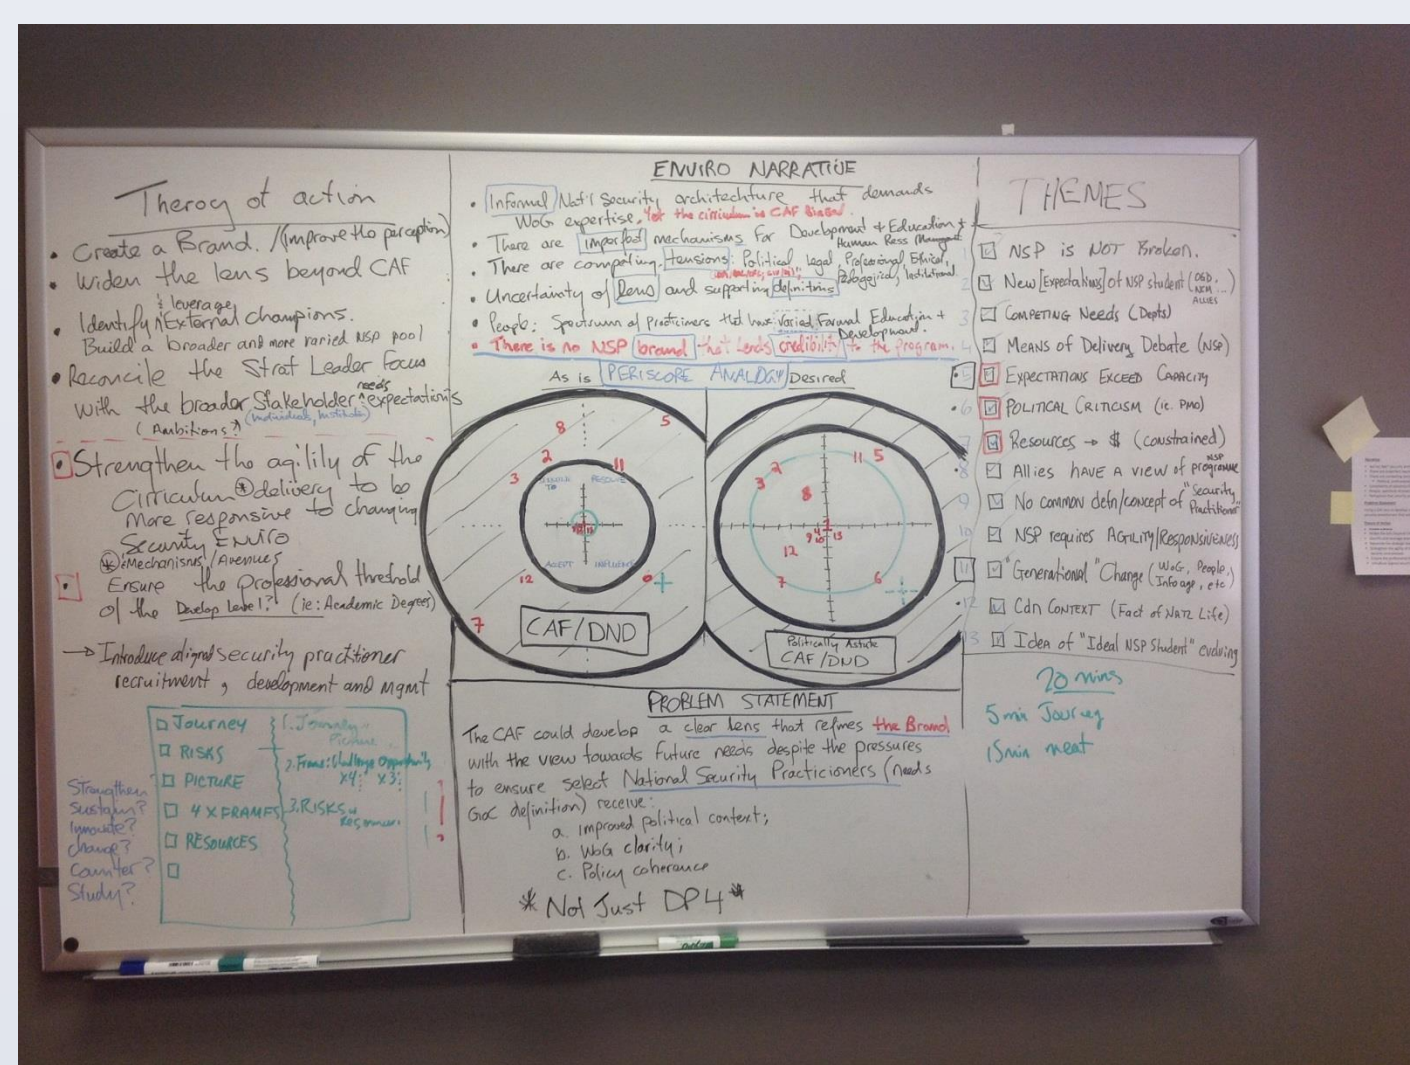 Therog of action
• Create a Brand. /(improve the perception)
• Widen the lens beyond CAF
& leverage
• Identify ^ External champions.
Build a broader and more varied NSP pool
• Reconcile the Strat Leader Focus
needs
with the broader Stakeholder ^ expectations
(Ambitions?) (individuals, institutes)
• Strengthen the agility of the
Cirriculum * delivery to be
more responsive to changing
Security Enviro
* "Mechanisms"/Avenues
• Ensure the professional threshold
of the Develop Level? (ie: Academic Degrees)
→ Introduce aligned security practitioner
recruitment, development and mgmt
Journey
RISKS
PICTURE
4 X FRAMES
RESOURCES
1. Journey
Picture
2. Frame: Challenge Opportunity
x4 x3
3. RISKS
Resources
Strengthen
Sustain?
Innovate?
Change?
Counter?
Study?
ENVIRO NARRATIVE
• Informal Nat'l Security architechture that demands
WoG expertise. Yet the cirriculum is CAF Biased.
• There are imperfect mechanisms for Development & Education &
Human Ress Managmt
• There are competing tensions: Political Legal, Professional, Ethical,
Pedagogical, Institutional
• Uncertainty of lens and supporting definitions
• People: Spectrum of Practicioners that have varied Formal Education +
Development.
• There is no NSP brand that lends credibility to the program.
As is PERISCOPE ANALOGY Desired
8 5
2 11
3
RESOLVE
ACCEPT INFLUENCE
12
7
CAF/DND
11 5
2
3
8
1
9 4 13
10
12
7 6
Politically Astute
CAF/DND
PROBLEM STATEMENT
The CAF could develop a clear lens that refines the Brand
with the view towards future needs despite the pressures
to ensure select National Security Practicioners (needs
GoC definition) receive:
a. Improved political context;
b. WoG clarity;
c. Policy coherence
* Not Just DP4 *
THEMES
1 NSP is NOT Broken.
2 New [Expectations] of NSP student (OGD,
NCM...
ALLIES)
3 COMPETING NEEDS (Depts)
4 MEANS of Delivery Debate (NSP)
5 EXPECTATIONS EXCEED CAPACITY
6 POLITICAL CRITICISM (ie. PMO)
7 Resources → $ (constrained)
NSP
8 Allies HAVE A VIEW of programme
9 No common defn/concept of "Security
Practitioner"
10 NSP requires AGILITY/RESPONSIVENESS
11 "Generational" Change (WoG, People,
Info age, etc)
12 Cdn CONTEXT (Fact of Nat'l Life)
13 Idea of "Ideal NSP Student" evolving
20 mins
5 min Journey
15 min meat